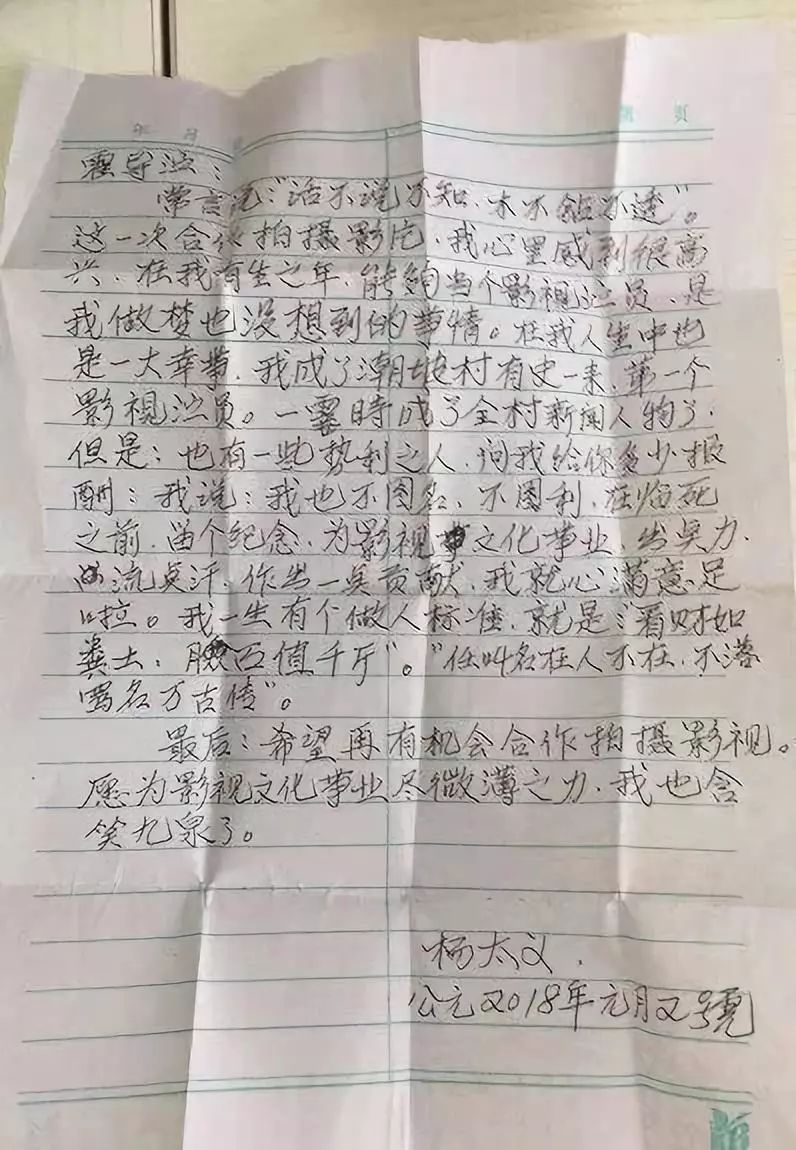 年 月 日
第 页
霍导演：
常言说："话不说不知，木不钻不透"。
这一次合伙拍摄影片，我心里感到很高
兴，在我有生之年，能够当个影视演员，是
我做梦也没想到的事情。在我人生中也
是一大幸事，我成了潮坡村有史一来，第一个
影视演员。一霎時成了全村新闻人物了，
但是：也有一些势利之人，问我给你多少报
酬：我说：我也不图名，不图利，在临死
之前，留个纪念，为影视文化事业，出点力，
流点汗，作出一点贡献，我就心满意足
啦。我一生有个做人标准，就是："看财如
粪土，脸面值千斤"。"任叫名在人不在，不落
骂名万古传"。
最后：希望再有机会合作拍摄影视。
愿为影视文化事业尽微薄之力，我也含
笑九泉了。
杨太义，
公元2018年元月2號